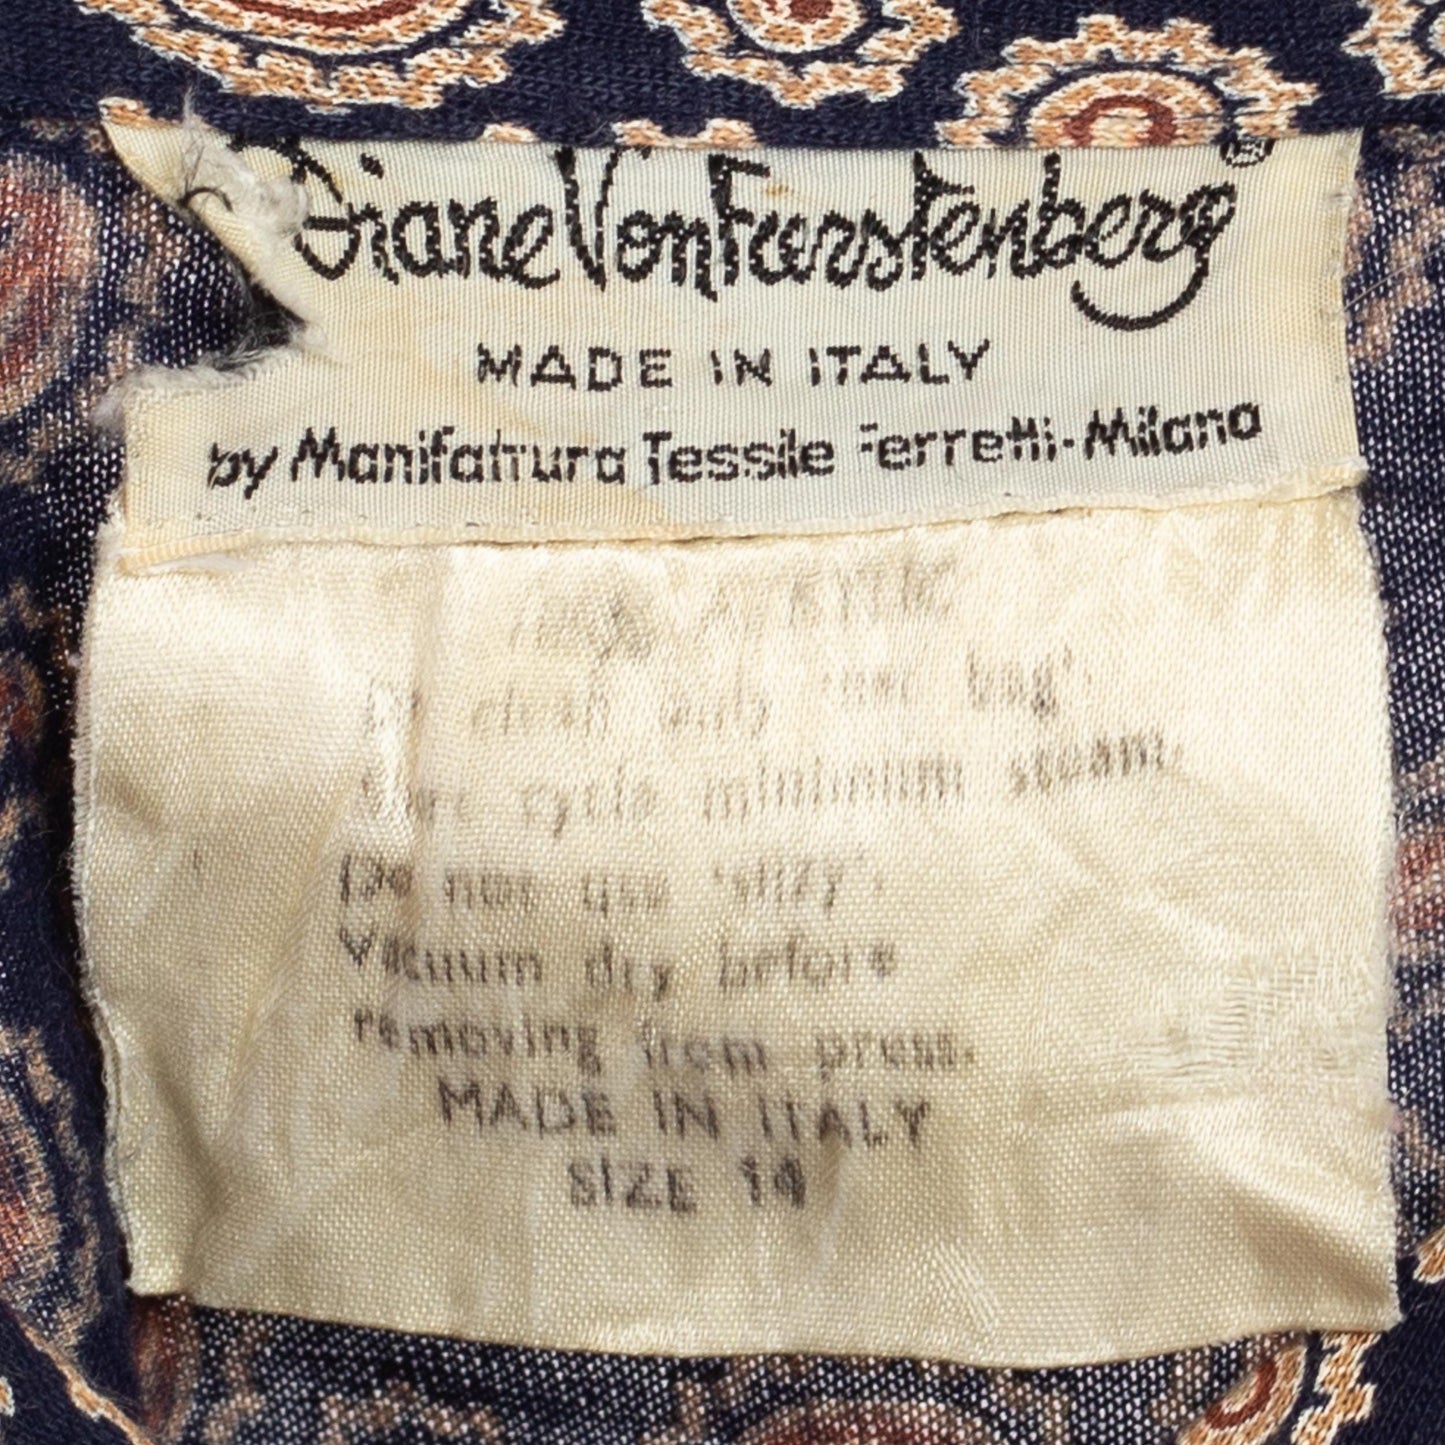 Diane Von Furstenberg ®
MADE IN ITALY
by Manifattura Tessile Ferretti-Milano
clean only net bag
cycle minimum steam.
Do not use 'slizy'.
Vacuum dry before
removing from press.
MADE IN ITALY
SIZE 14